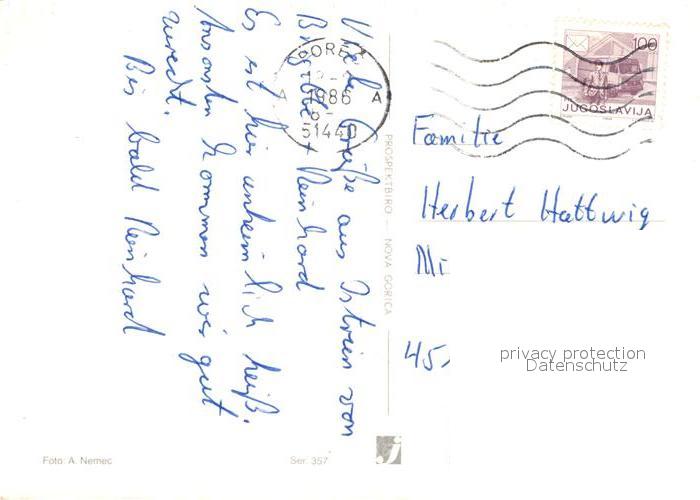 Viele Grüße aus Istrien von
Brigitte + Reinhard
Es ist hier unheimlich heiß.
Ansonsten kommen wir gut
zurecht.
Bis bald Reinhard
POREČ
1986
A A
51440
100
JUGOSLAVIJA
Familie
Herbert Hattwig
Mi
45.
privacy protection
Datenschutz
PROSPEKTBIRO — NOVA GORICA
Foto: A. Nemec
Ser. 357